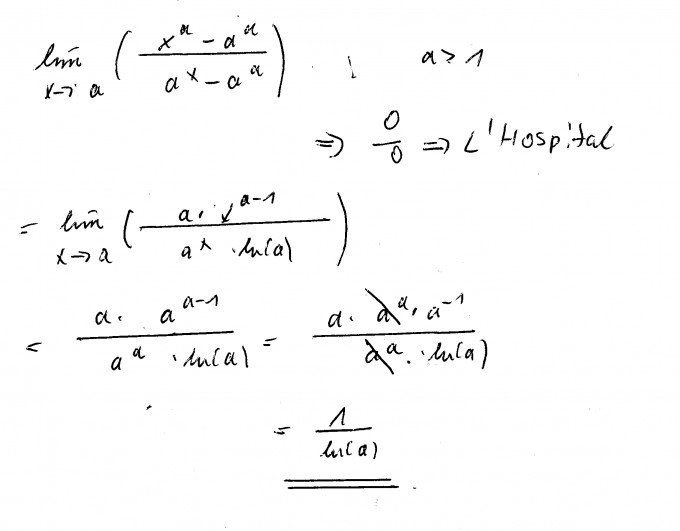 lim x→a ( (x^a − a^a) / (a^x − a^a) ) , a > 1
⇒ 0/0 ⇒ L'Hospital
= lim x→a ( (a · x^(a−1)) / (a^x · ln(a)) )
= (a · a^(a−1)) / (a^a · ln(a)) = (a · a^a · a^−1) / (a^a · ln(a))
= 1 / ln(a)